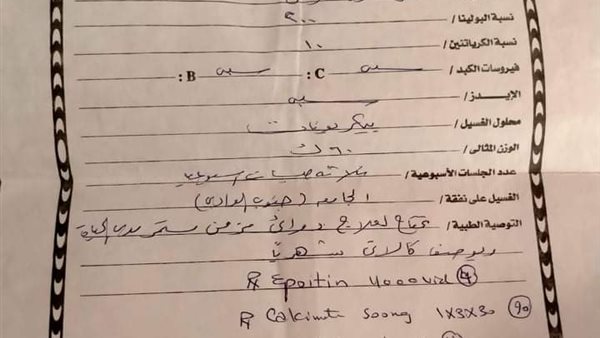 نسبة البولينا / ٢٠٠
نسبة الكرياتنين / ١٠
فيروسات الكبد / C : سلبى B : سلبى
الإيدز / سلبى
محلول الغسيل / بيكربونات
الوزن المثالى / ٦٠ ك
عدد الجلسات الأسبوعية / ثلاثة جلسات اسبوعيا
الغسيل على نفقة / الجامعه (جنوب الوادى)
التوصية الطبية / تحتاج لعلاج دوائى مزمن مستمر مدى الحياة
ويوصف كالاتى شهريا
℞ Epoitin 4000 vial ④
℞ Calcimate 500mg 1x3x30 (90)